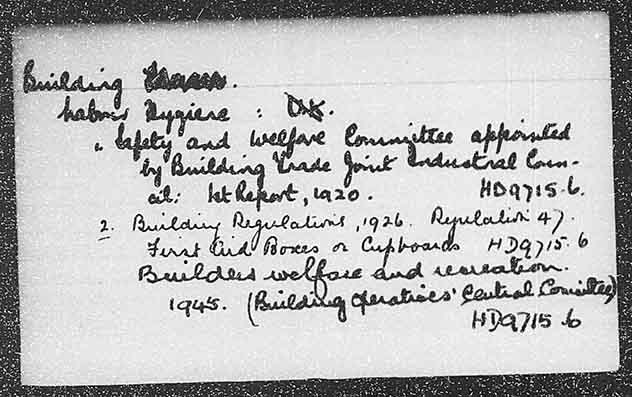 Building
Labour Hygiene : U.K.
1. Safety and Welfare Committee appointed
by Building Trade Joint Industrial Coun-
cil: 1st Report, 1920. HD9715.6.
2. Building Regulations, 1926. Regulation 47.
First Aid Boxes or Cupboards HD9715.6
Builders welfare and recreation.
1945. (Building Operatives' Central Committee)
HD9715.6